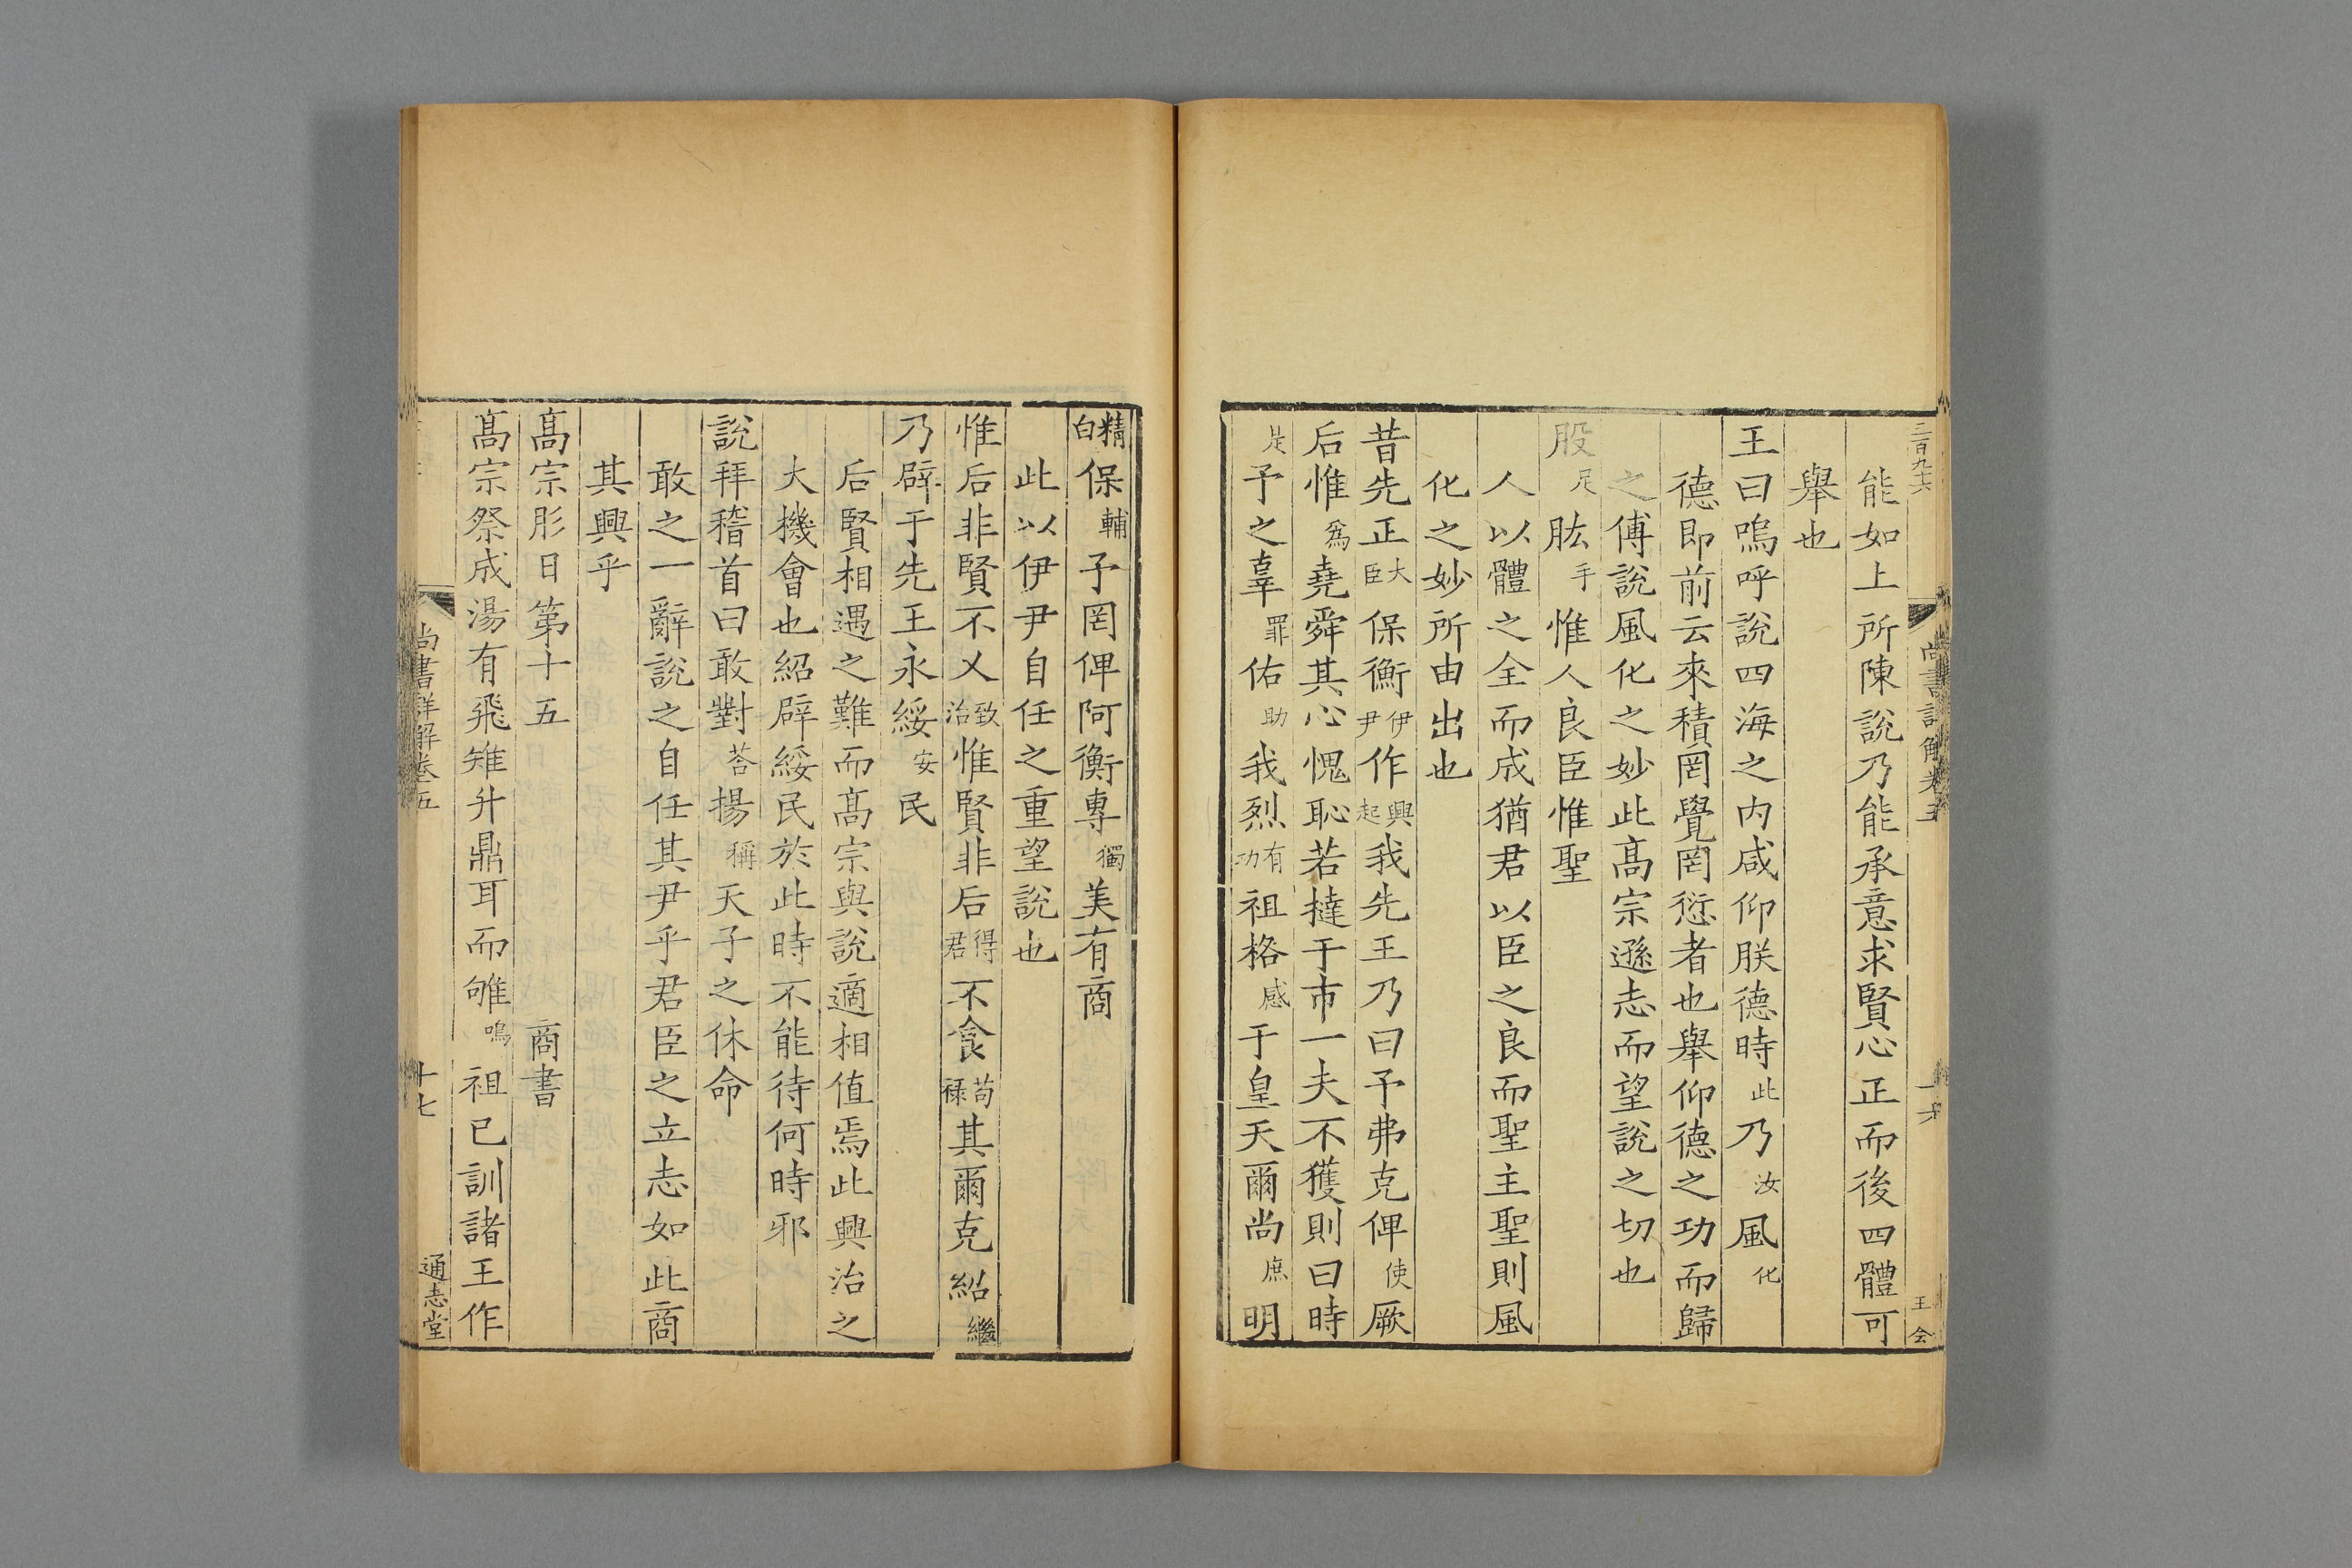 三百九十六
尚書詳解卷五
王
能如上所陳說乃能承意求賢心正而後四體可
舉也
王曰嗚呼說四海之内咸仰朕德時此乃汝風化
德即前云來積罔覺罔愆者也舉仰德之功而歸
之傅說風化之妙此高宗遜志而望說之切也
股足肱手惟人良臣惟聖
人以體之全而成猶君以臣之良而聖主聖則風
化之妙所由出也
昔先正大臣保衡伊尹作興起我先王乃曰予弗克俾使厥
后惟爲堯舜其心愧恥若撻于市一夫不獲則曰時
是予之辜罪佑助我烈有功祖格感于皇天爾尚庶明
精白保輔予罔俾阿衡專獨美有商
此以伊尹自任之重望說也
惟后非賢不乂致治惟賢非后得君不食苟祿其爾克紹繼
乃辟于先王永綏安民
后賢相遇之難而髙宗與說適相值焉此興治之
大機會也紹辟綏民於此時不能待何時邪
說拜稽首曰敢對荅揚稱天子之休命
敢之一辭說之自任其尹乎君臣之立志如此商
其興乎
髙宗肜日第十五 商書
髙宗祭成湯有飛雉升鼎耳而雊鳴祖已訓諸王作
尚書詳解卷五
十七
通志堂